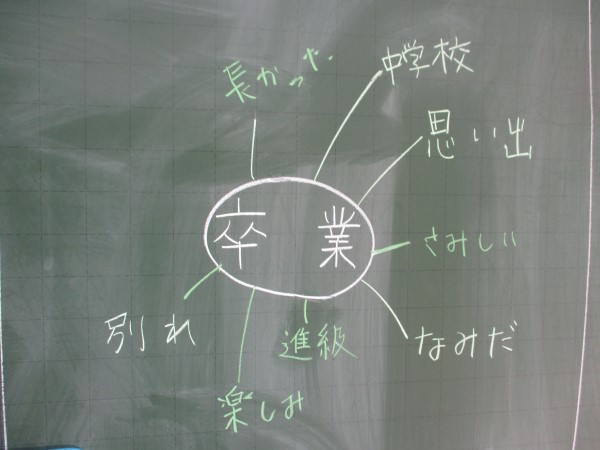 長かった
中学校
思い出
卒業
さみしい
別れ
進級
なみだ
楽しみ